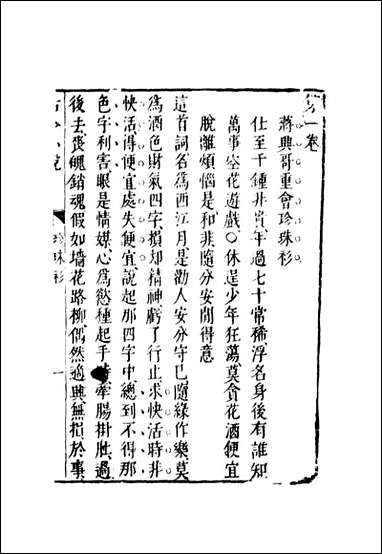 第一卷
蔣興哥重會珍珠衫
仕至千鍾非貴年過七十常稀浮名身後有誰知
萬事空花遊戲○休逞少年狂蕩莫貪花酒便宜
脫離煩惱是和非隨分安閒得意
這首詞名爲西江月是勸人安分守已隨緣作樂莫
爲酒色財氣四字損却精神虧了行止求快活時非
快活得便宜處失便宜說起那四字中總到不得那
色字利害眼是情媒心爲慾種起手時牽腸掛肚過
後去喪魄銷魂假如墻花路柳偶然適興無損於事
古今小說
珍珠衫
一